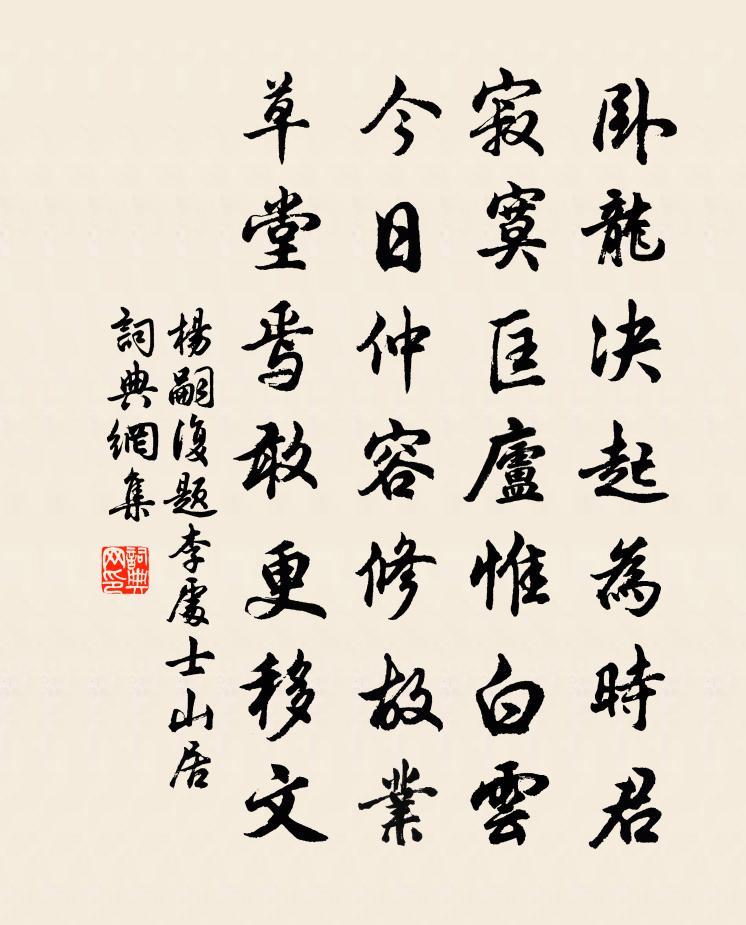 卧龍決起為時君
寂寞匡廬惟白雲
今日仲容修故業
草堂焉敢更移文
楊嗣復題李處士山居
詞典網集
詞典网印